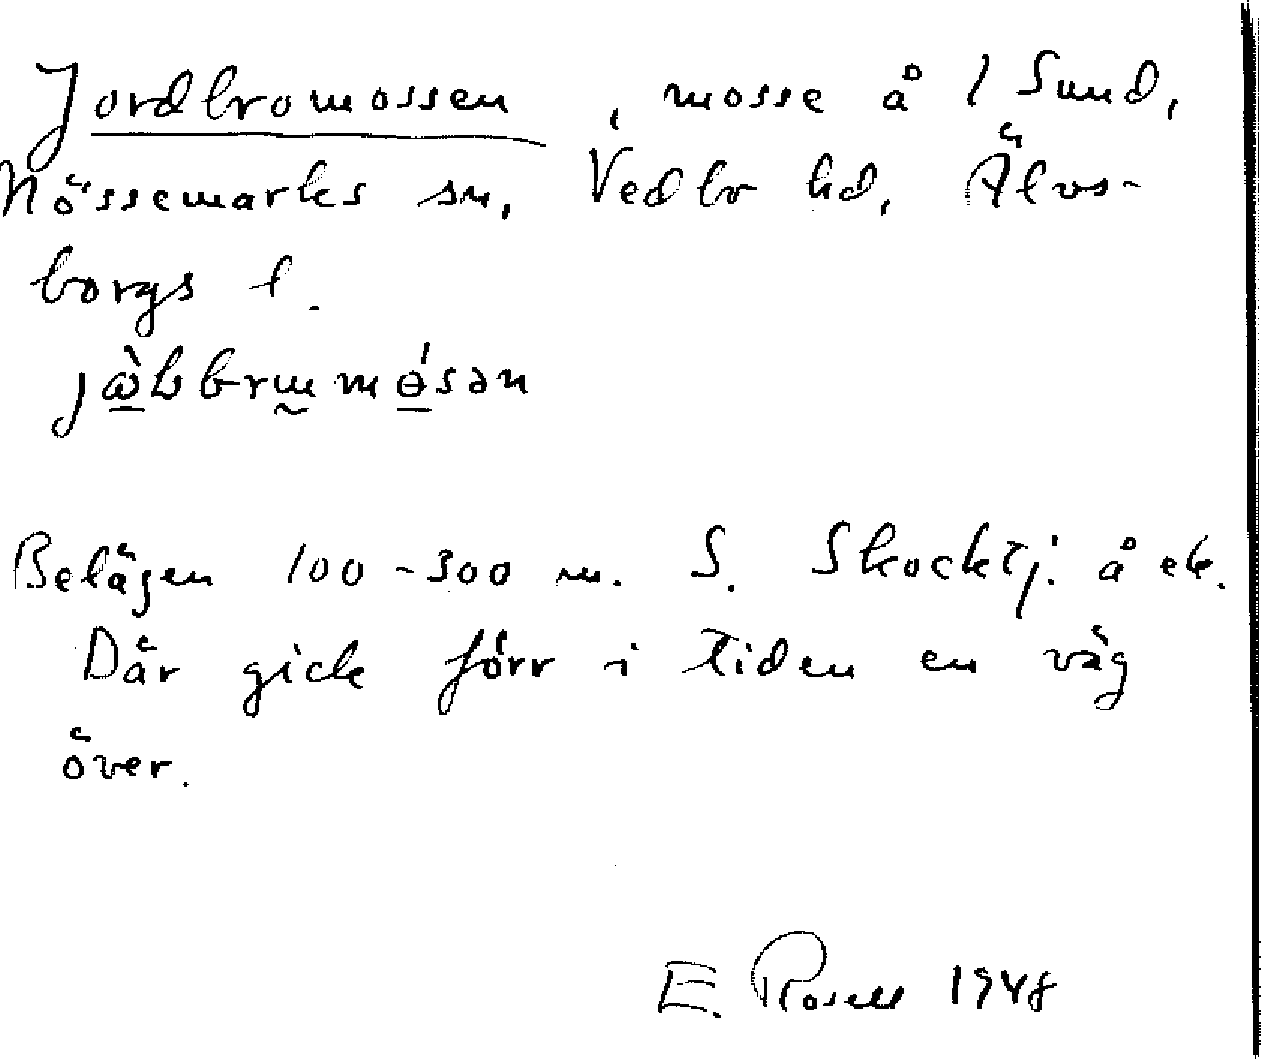 Jordbromossen, mosse å 1 Sund,
Nössemarks sn, Vedbo hd, Älvs-
borgs l.
Belägen 100-300 m. S. Skocktj. å ek.
Där gick förr i tiden en väg
över.
E. Rosell 1948